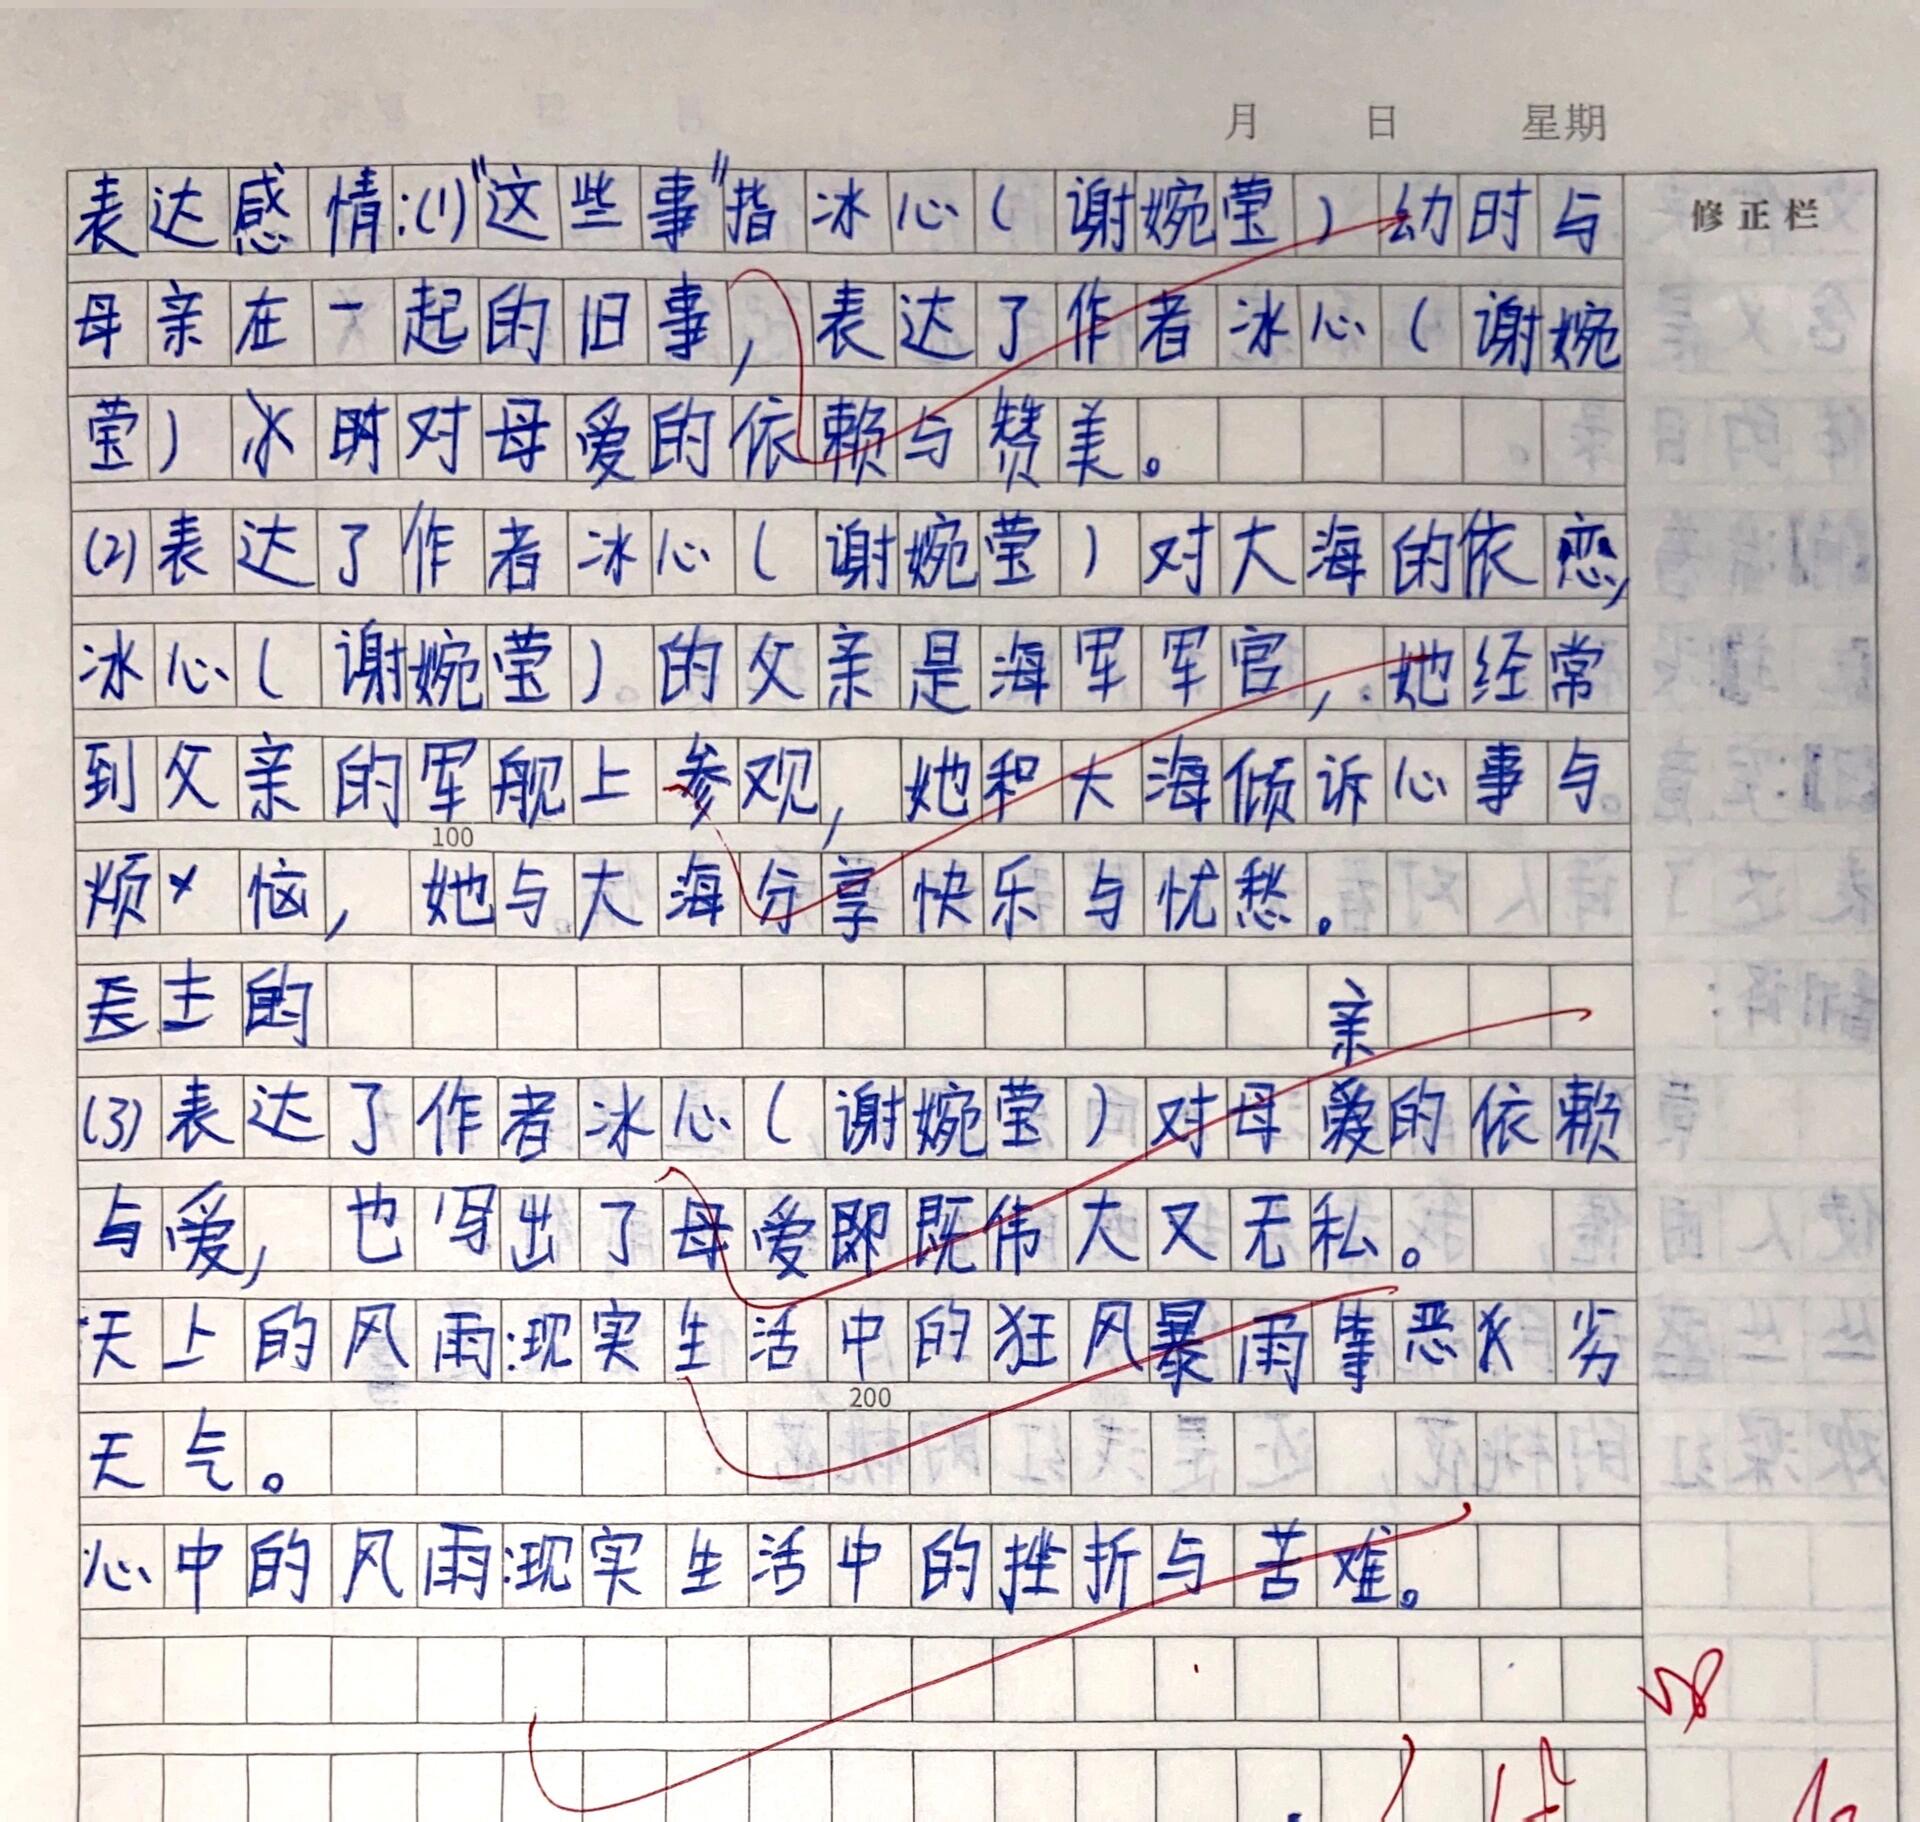 月 日 星期
修正栏
表达感情:(1)"这些事"指冰心(谢婉莹)幼时与
母亲在一起的旧事,表达了作者冰心(谢婉
莹)时对母爱的依赖与赞美。
(2)表达了作者冰心(谢婉莹)对大海的依恋,
冰心(谢婉莹)的父亲是海军军官,她经常
到父亲的军舰上参观,她和大海倾诉心事与
100
烦恼,她与大海分享快乐与忧愁。
亲
(3)表达了作者冰心(谢婉莹)对母爱的依赖
与爱,也写出了母爱即既伟大又无私。
天上的风雨:现实生活中的狂风暴雨等恶劣
200
天气。
心中的风雨:现实生活中的挫折与苦难。